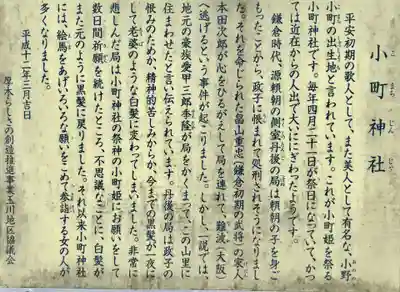 小町神社
平安初期の歌人として、また美人として有名な、小野
小町の出生地と言われています。これが小町姫を祭る
小町神社です。毎年四月二十一日が祭日になっていて、かつ
ては近在からの人出で大いににぎわったようです。
鎌倉時代、源頼朝の側室丹後の局は頼朝の子を身ご
もったことから、政子に恨まれて処刑されそうになりまし
た。それを命じられた畠山重忠(鎌倉初期の武将)の家人
本田次郎が心をひるがえして局を連れて、難波(大阪)
へ逃げるという事件が起こりました。しかし、一説では、
地元の豪族愛甲三郎季隆が局をかくまって、この山里に
住まわせたと言い伝えられています。丹後の局は政子の
恨みのためか、精神的苦しみからか、今までの黒髪が一夜に
して老婆のような白髪に変わってしまいました。非常に
悲しんだ局は小町神社の祭神の小町姫にお願いをして
数日間祈願を続けたところ、不思議なことに、白髪が
また元のように黒髪に戻りました。それ以来小町神社
には、絵馬をあげいろいろな願いをこめて参詣する女の人が
多くなりました。
平成十二年三月吉日
厚木らしさの創造推進事業玉川地区協議会